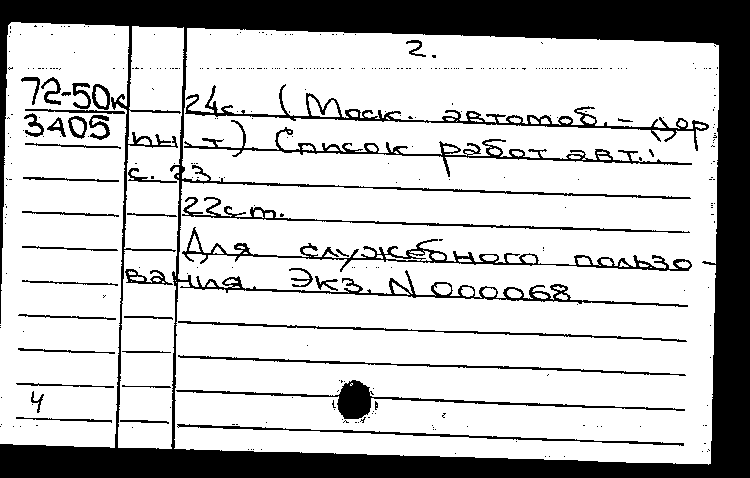 2.
72-50к 24с. (Моск. автомоб. - дор
3405 ин-т). Список работ авт.:
с. 23.
22см.
Для служебного пользо-
вания. Экз. N 000068
4